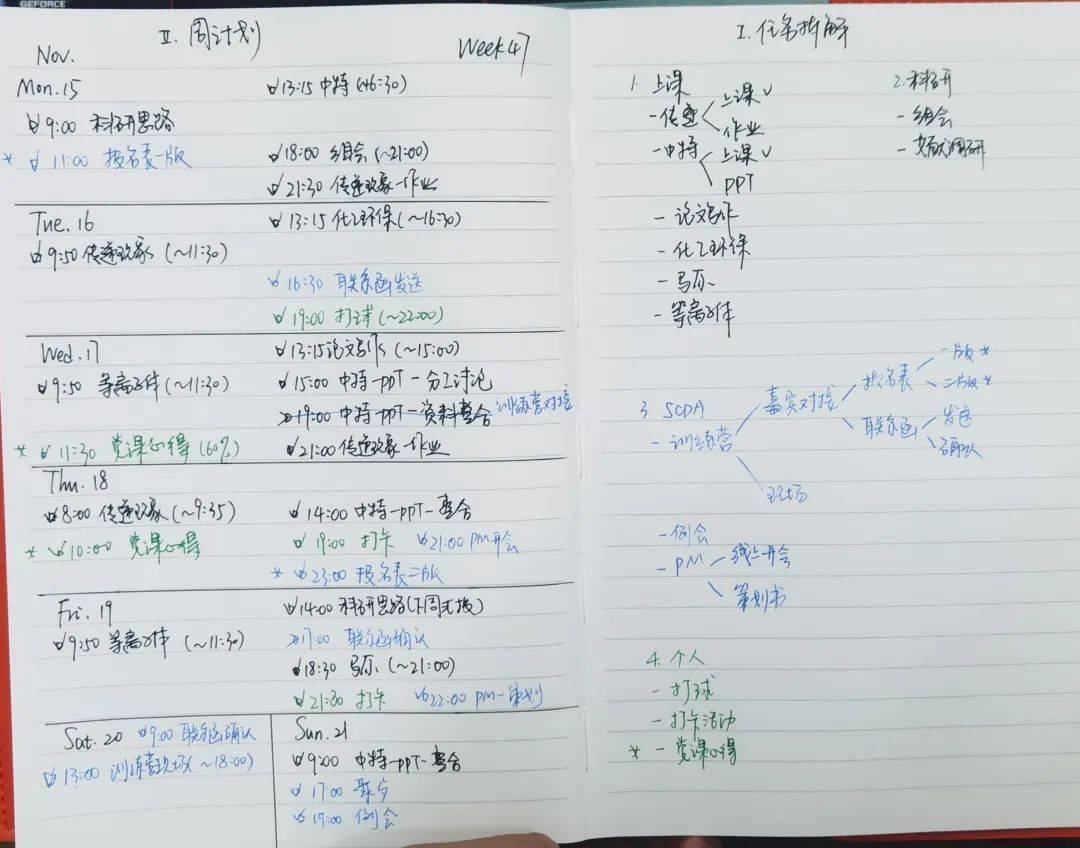 GEFORCE
II. 周计划
Nov.
Week 47
Mon. 15
13:15 中特 (~16:30)
9:00 科研思路
* 11:00 报名表一版
18:00 组会 (~21:00)
21:30 传递现象-作业
Tue. 16
13:15 化工环保 (~16:30)
9:50 传递现象 (~11:30)
16:30 联系函发送
19:00 打球 (~22:00)
Wed. 17
13:15 论文写作 (~15:00)
9:50 等离子体 (~11:30)
15:00 中特-PPT-分工讨论
19:00 中特-PPT-资料整合 训练营对接
* 11:30 党课心得 (60%)
21:00 传递现象-作业
Thu. 18
8:00 传递现象 (~9:35)
14:00 中特-PPT-整合
* 10:00 党课心得
19:00 打卡 21:00 PM开会
* 23:00 报名表二版
Fri. 19
14:00 科研思路(下周汇报)
9:50 等离子体 (~11:30)
17:00 联系函确认
18:30 马原 (~21:00)
21:30 打卡 22:00 PM-策划
Sat. 20 9:00 联系函确认
13:00 训练营现场 (~18:00)
Sun. 21
9:00 中特-PPT-整合
17:00 聚餐
19:00 例会
I. 任务拆解
1. 上课
- 传递
上课 ✓
作业
- 中特
上课 ✓
PPT
- 论文写作
- 化工环保
- 马原
- 等离子体
2. 科研
- 组会
- 文献调研
3. SCDA
- 训练营
嘉宾对接
报名表
一版 *
二版 *
联系函
发送
确认
现场
- 例会
- PM
线上开会
策划书
4. 个人
- 打球
- 打卡活动
* - 党课心得